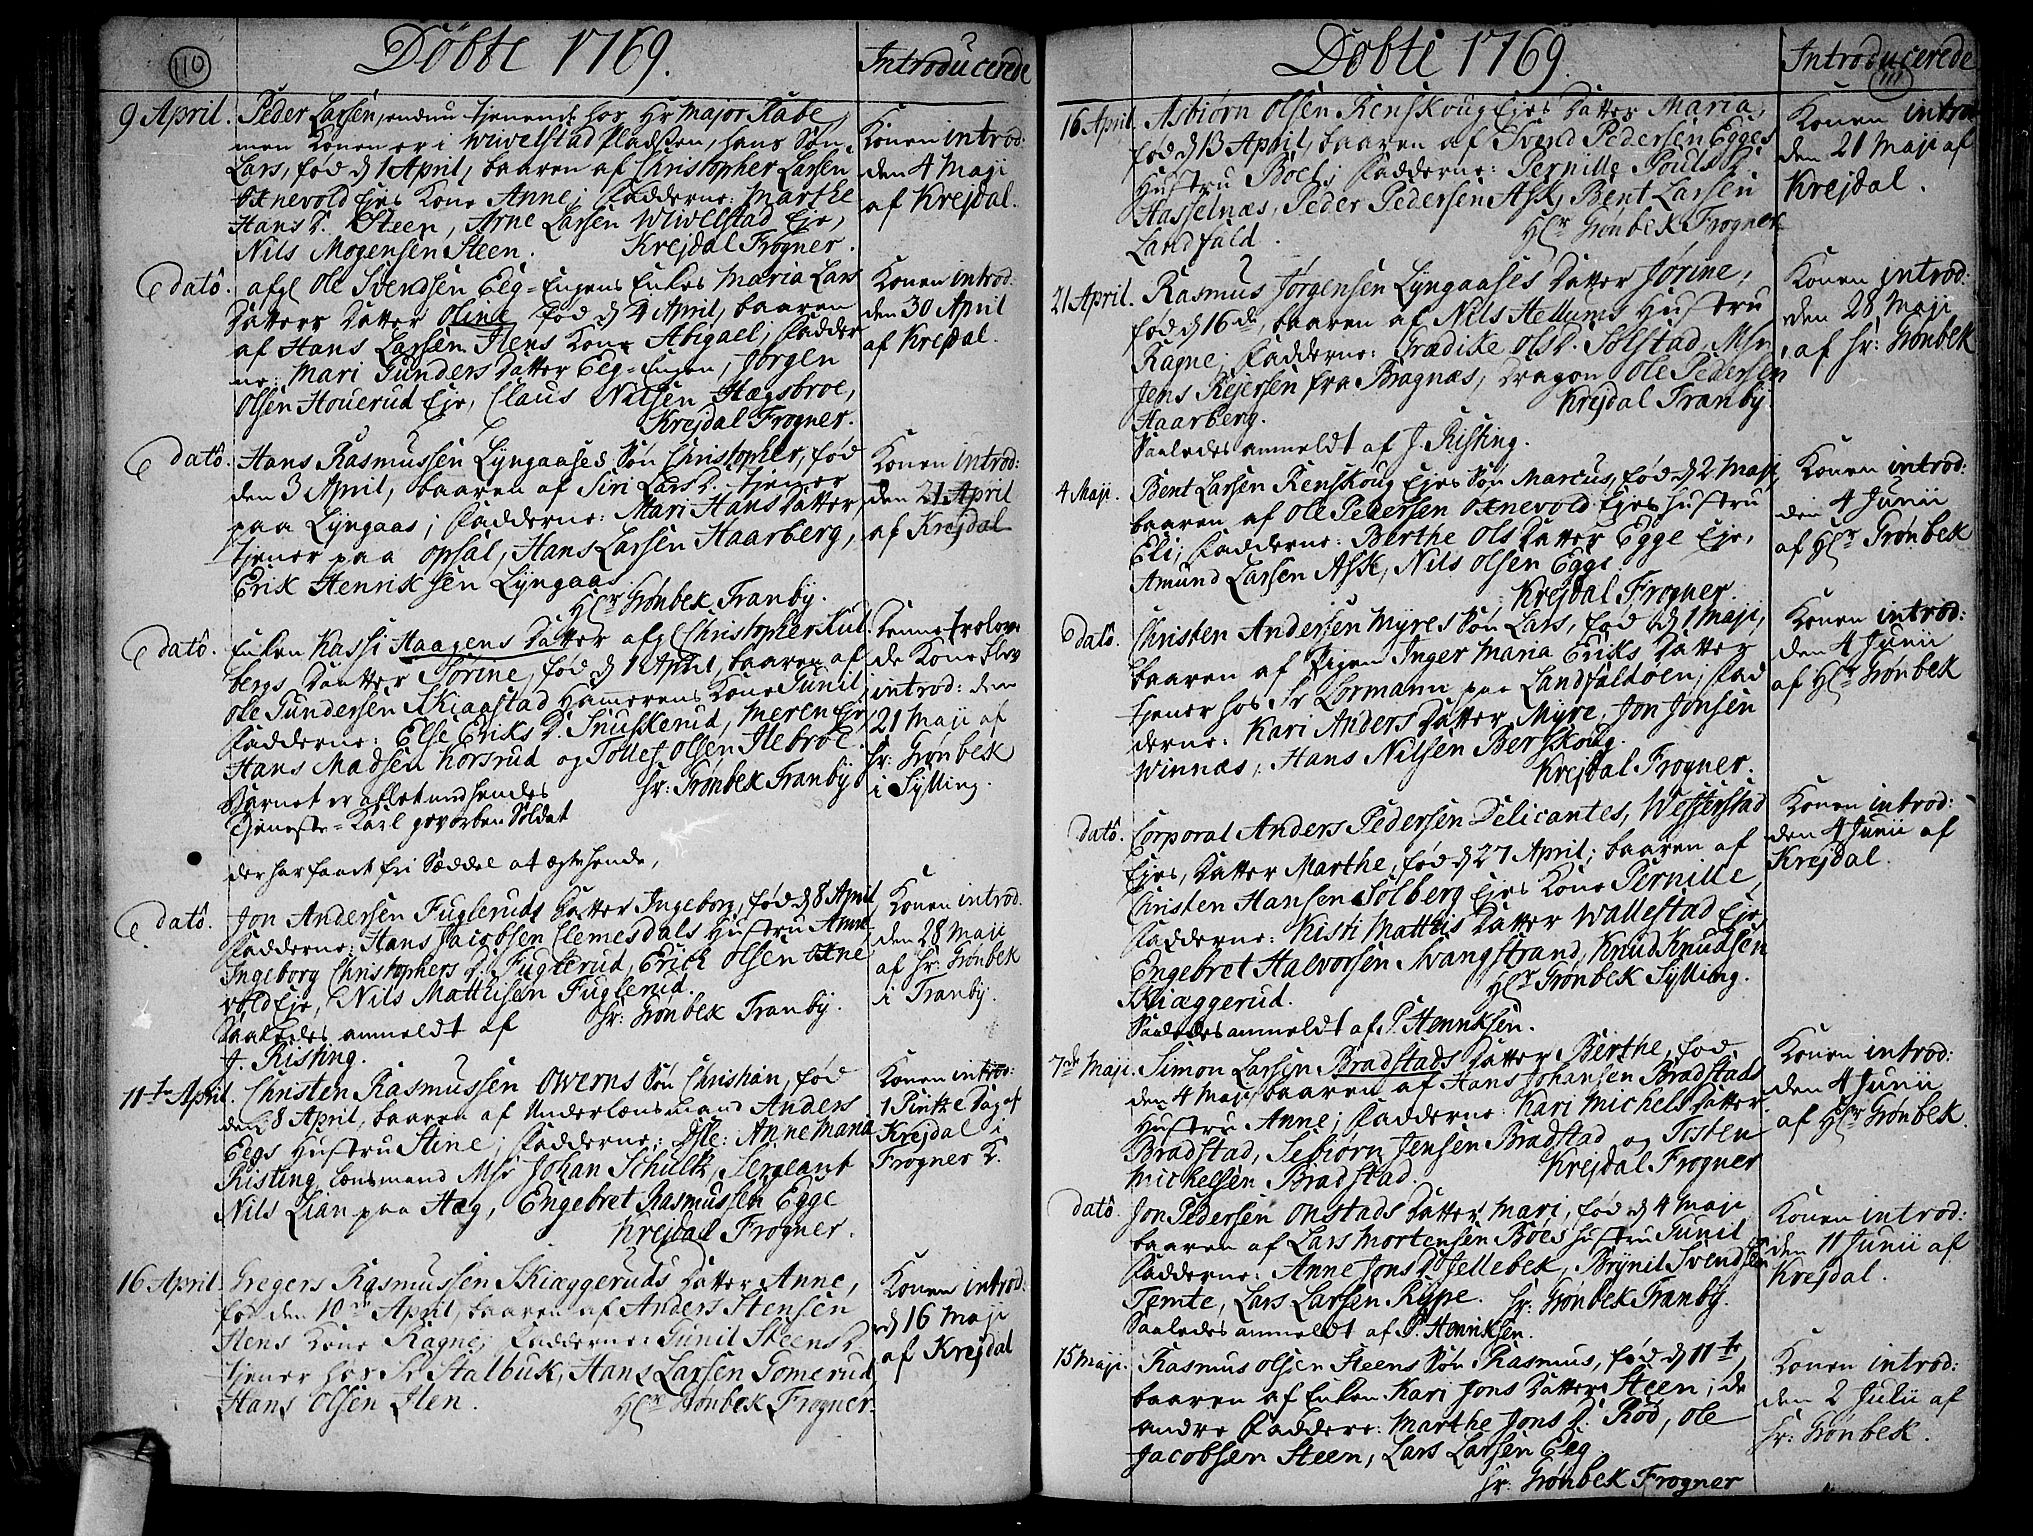 110
Döbte 1769.
Introducerede
9 April. Peder Larsen, endnu tjenende hos Hr Major Rabe,
men Konen er i Wivelstad Pladsen, hans Søn
Lars, fød d 1 April, baaren af Christopher Larsen
Oxnevold Ejes Kone Anne; Fadderne: Marthe
Hans D. Steen, Arne Larsen Wivelstad Eje,
Nils Mogensen Steen. Krejdal Frogner.
Konen introd:
den 4 Maji
af Krejdal.
dato. afgl Ole Svendsen Eeg-Engens Enkes Maria Lars
Datters Datter Oline fød d 4 April, baaren
af Hans Larsen Ilens Kone Abigael; Fadder
ne: Mari Gunders Datter Eeg-Engen, Jørgen
Olsen Houerud Eje, Claus Nilsen Hægsbroe,
Krejdal Frogner.
Konen introd:
den 30 April
af Krejdal.
dato. Hans Rasmussen Lyngaases Søn Christopher, fød
den 3 April, baaren af Siri Lars D. tjener
paa Lyngaas; Fadderne: Mari Hans Datter,
tjener paa Opsal, Hans Larsen Haarberg,
Erik Henriksen Lyngaas.
Hr Grønbek Tranby.
Konen introd:
den 21 April
af Krejdal
dato. Enken Kassi Haagens Datter afgl Christopher Kul
bergs Daatter Torine, fød d 1 April, baaren af
Ole Gundersen Skiaastad Hamerens Kone Gunil
Fadderne: Else Eriks D. Snuskerud, Meren Eje
Hans Madsen Korsrud og Tollef Olsen Ilebroe.
Barnet er aflet med hendes Hr: Grønbek Tranby
Tjeneste-Karl geworben Soldat
der har faaet fri Seddel at ægte hende,
Denne trolove
de Kone blev
introd: den
21 Maji af
Hr: Grønbek
i Sylling.
dato. Jon Andersen Fugleruds Datter Ingeborg, fød d 8 April
Fadderne: Hans Jacobsen Clemesdals Hustru Anne
Ingeborg Christophers D. Fuglerud, Erick Olsen Oxne
vold Eje, Nils Matthisen Fuglerud.
Saaledes anmeldt af Hr: Grønbek Tranby.
J. Risting.
Konen introd.
den 28 Maji
af Hr: Grønbek
i Tranby.
11te April. Christen Rasmussen Owerns Søn Christian, fød
den 8 April, baaren af Underlænsmand Anders
Eegs Hustru Stine; Fadderne: Mlle: Anne Maria
Risting, Lænsmand Msr Johan Schultz, Sergeant
Nils Lian paa Hæg, Engebret Rasmussen Egge
Krejdal Frogner.
Konen introd:
1 Pintse Dag af
Krejdal i
Frogner K.
16 April. Gregers Rasmussen Skiæggeruds Datter Anne,
fød den 10de April, baaren af Anders Stensen
Ilens Kone Ragne; Fadderne: Gunil Steens D.
tjener hos Sr Stalbuk, Hans Larsen Gomerud,
Hans Olsen Ilen. Hr Grønbek Frogner.
Konen introd:
d 16 Maji
af Krejdal
111
Döbte 1769.
Introducerede
16 April. Asbiørn Olsen Renskoug Ejes Datter Maria,
fød d 13 April, baaren af Svend Pedersen Egges
Hustru Boel; Fadderne: Pernille Pouls D.
Hasselnæs, Peder Pedersen Ask, Bent Larsen
Landfald. Hr Grønbek Frogner
Konen introd
den 21 Maji af
Krejdal.
21 April. Rasmus Jørgensen Lyngaases Datter Jørine,
fød d 16de, baaren af Nils Hellums Hustru
Ragne; Fadderne: Grædike Ols D. Solstad, Msr
Jens Rejersen fra Bragnæs, Dragon Ole Pedersen
Haarberg. Krejdal Tranby.
Saaledes anmeldt af J. Risting.
Konen introd:
den 28 Maji
af Hr: Grønbek
4 Maji. Bent Larsen Renskoug Ejes Søn Marcus, fød d 2 Maji
baaren af Ole Pedersen Oxnevold Ejes Hustru
Eli; Fadderne: Berthe Ols Datter Egge Eje,
Amund Larsen Ask, Nils Olsen Egge.
Krejdal Frogner.
Konen introd:
den 4 Junii
af Hr Grønbek
dato. Christen Andersen Myres Søn Lars, fød d 1 Maji,
baaren af Pigen Inger Maria Eriks Datter
tjener hos Sr Lormann paa Landfaldøen; Fad
derne: Kari Anders Datter Myre, Jon Jonsen
Winnæs, Hans Nilsen Berskoug.
Krejdal Frogner.
Konen introd:
den 4 Junii
af Hr Grønbek
dato. Corporal Anders Pedersen Delicantes, Wefferstad
Ejes, Datter Marthe, fød d 27 April; baaren af
Christen Hansen Solberg Ejes Kone Pernille
Fadderne: Kisti Matthis Datter Wallestad Eje
Engebret Halvorsen Svangstrand, Knud Knudsen
Skiæggerud. Hr Grønbek Sylling.
Saaledes anmeldt af P. Henriksen.
Konen introd:
den 4 Junii af
Krejdal.
7de Maji. Simon Larsen Bradstads Datter Berthe, fød
den 4 Maji, baaren af Hans Johansen Bradstads
Hustru Anne; Fadderne: Kari Michels Datter
Bradstad, Sebiørn Jensen Bradstad og Tosten
Michelsen Bradstad. Krejdal Frogner
Konen introd:
den 4 Junii
af Hr Grønbek.
dato. Jon Pedersen Onstads Datter Mari, fød d 4 Maji
baaren af Lars Mortensen Bøes Hustru Gunil
Fadderne: Anne Jons D. Jellebek, Brynil Svendsen
Temte, Lars Larsen Rype. Hr: Grønbek Tranby.
Saaledes anmeldt af P. Henriksen.
Konen introd:
den 11 Junii af
Krejdal.
15 Maji. Rasmus Olsen Steens Søn Rasmus, fød d 11te,
baaren af Enken Kari Jons Datter Steen; de
andre Faddere: Marthe Jons D. Rød, Ole
Jacobsen Steen, Lars Larsen Eeg.
Hr: Grønbek Frogner
Konen introd:
den 2 Julii af
Hr: Grønbek.